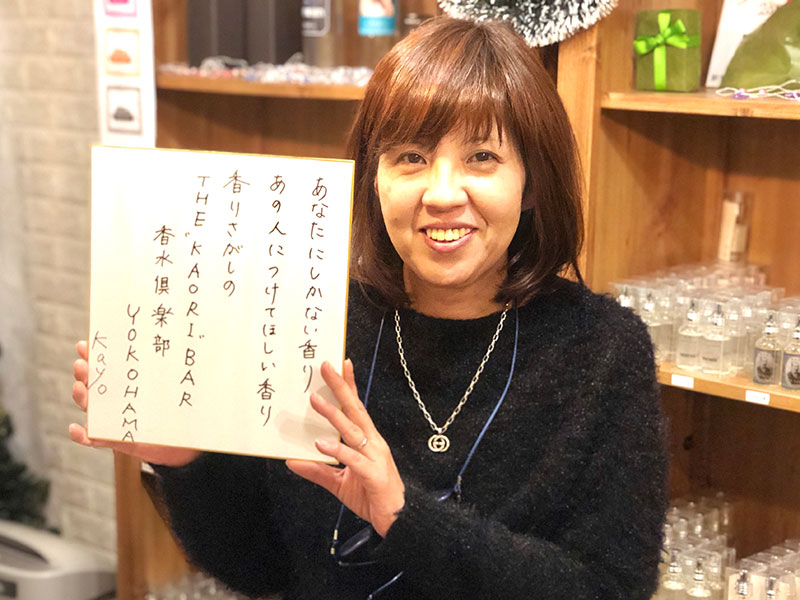 あなたにしかない香り
あの人につけてほしい香り
香りさがしの
THE "KAORI" BAR
香水倶楽部
YOKOHAMA
Kayo